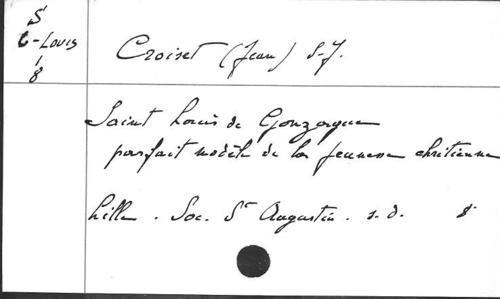 S
C-Louis
1
8
Croiset (Jean) S-J.
Saint Louis de Gonzague
parfait modèle de la jeunesse chrétienne
Lille. Soc. St Augustin. s.d. 8°